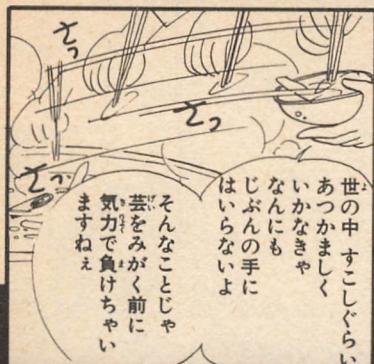 世の中 すこしぐらい
あつかましく
いかなきゃ
なんにも
じぶんの手に
はいらないよ
そんなことじゃ
芸をみがく前に
気力で負けちゃい
ますねぇ
さっ
さっ
さっ